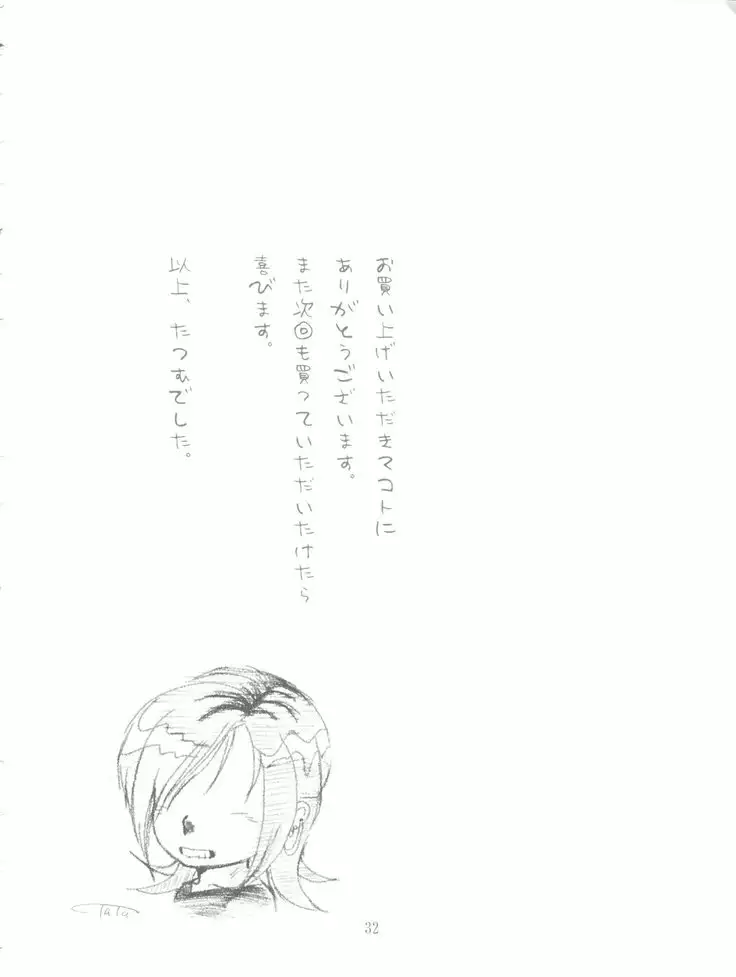 お買い上げいただきマコトに
ありがとうございます。
また次回も買っていただいたけたら
喜びます。
以上、たつむでした。
TaTa
32